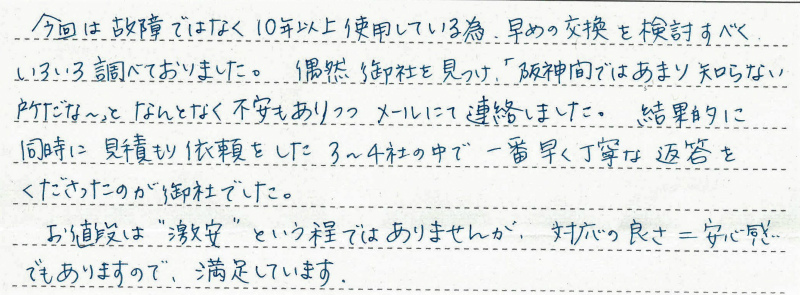 今回は故障ではなく10年以上使用している為、早めの交換を検討すべく
いろいろ調べておりました。 偶然御社を見つけ、「阪神間ではあまり知らない
所だな〜」と なんとなく不安もありつつ メールにて連絡しました。 結果的に
同時に見積もり依頼をした3〜4社の中で一番早く丁寧な返答を
くださったのが御社でした。
お値段は"激安"という程ではありませんが、対応の良さ=安心感
でもありますので、満足しています.